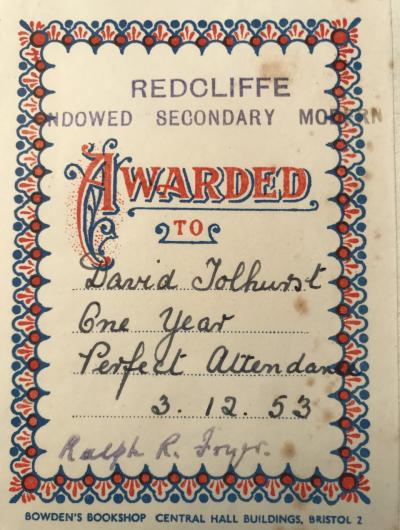 REDCLIFFE
ENDOWED SECONDARY MODERN
AWARDED
TO
David Tolhurst
One Year
Perfect Attendance
3. 12. 53
Ralph R. Fryer.
BOWDEN'S BOOKSHOP CENTRAL HALL BUILDINGS, BRISTOL 2